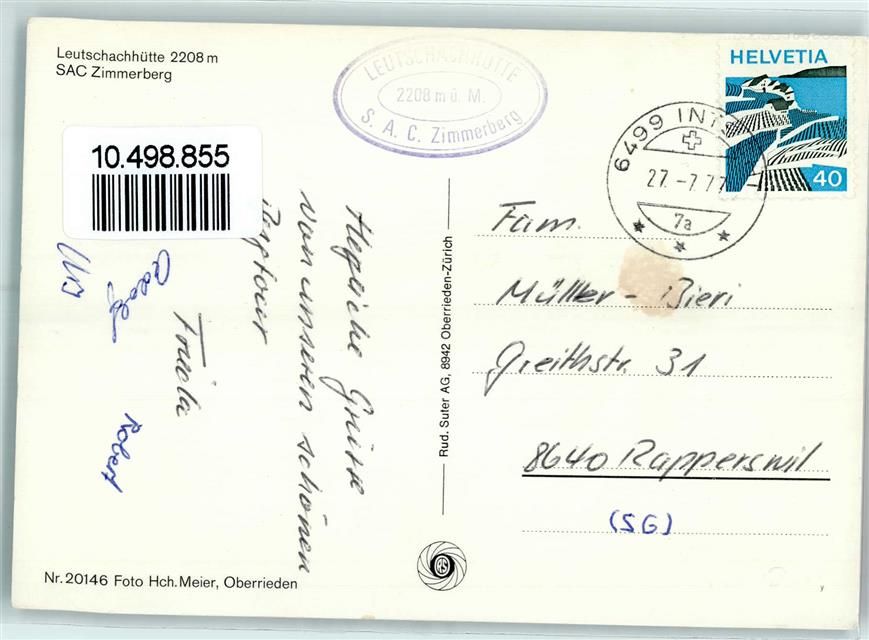 Leutschachhütte 2208 m
SAC Zimmerberg
LEUTSCHACHHÜTTE
2208 m ü. M.
S. A. C. Zimmerberg
HELVETIA
40
6499 INTSCHI
27.-7.77
7a
10.498.855
Herzliche Grüsse
von unseren schönen
Bergtour
Robert
Urs
Rud. Suter AG, 8942 Oberrieden-Zürich
Fam.
Müller-Bieri
Greithstr. 31
8640 Rapperswil
(SG)
Nr. 20146 Foto Hch. Meier, Oberrieden